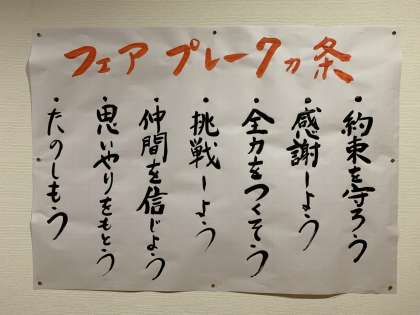 フェアプレー7ヵ条
・約束を守ろう
・感謝しよう
・全力をつくそう
・挑戦しよう
・仲間を信じよう
・思いやりをもとう
・たのしもう